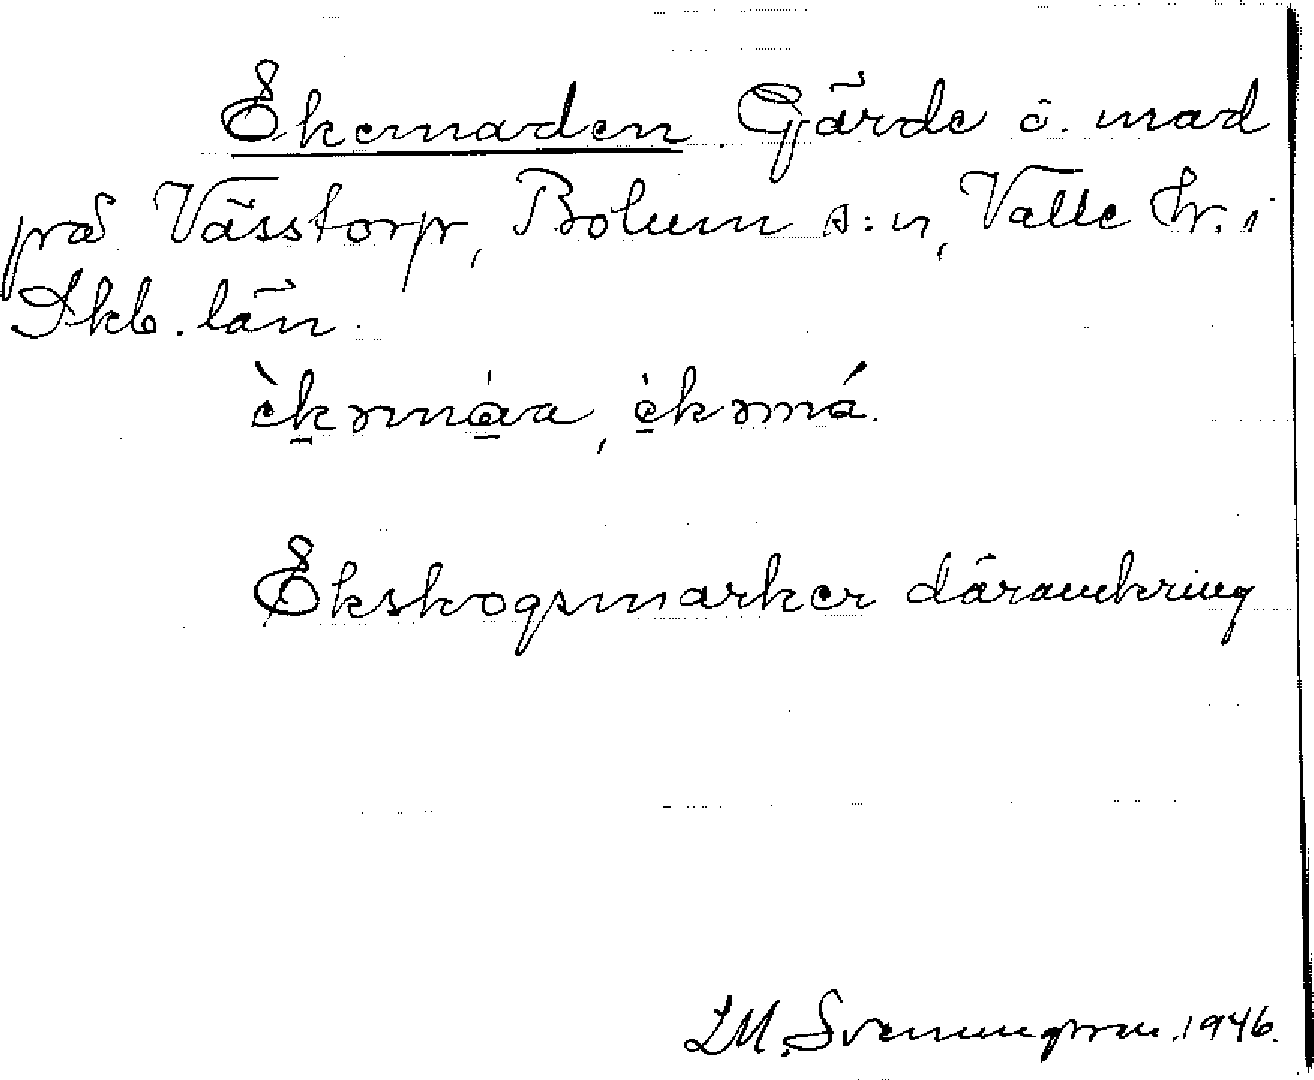 Ekemaden. Gärde o. mad
på Vässtorp, Bolum s:n, Valle hr. i
Skb. län.
èkəmáa, èkəmá.
Ekskogsmarker däromkring
LM. Svenungsson. 1946.